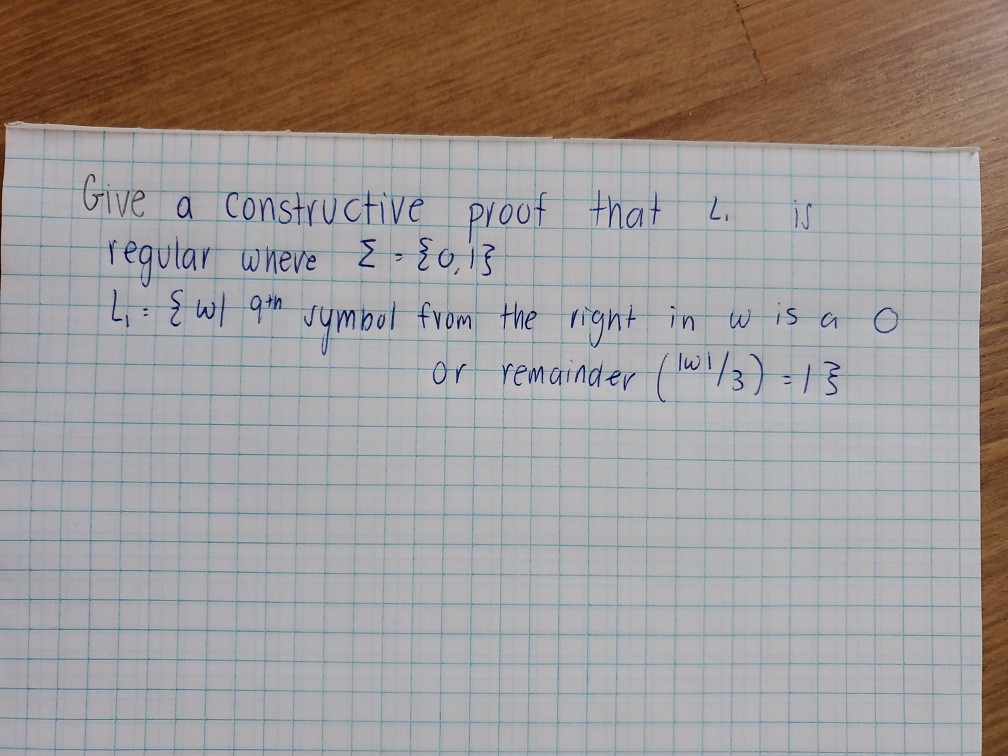 Give a constructive proof that L₁ is
regular where Σ = {0,1}
L₁ = {w| 9th symbol from the right in w is a 0
or remainder (|w|/3) = 1}